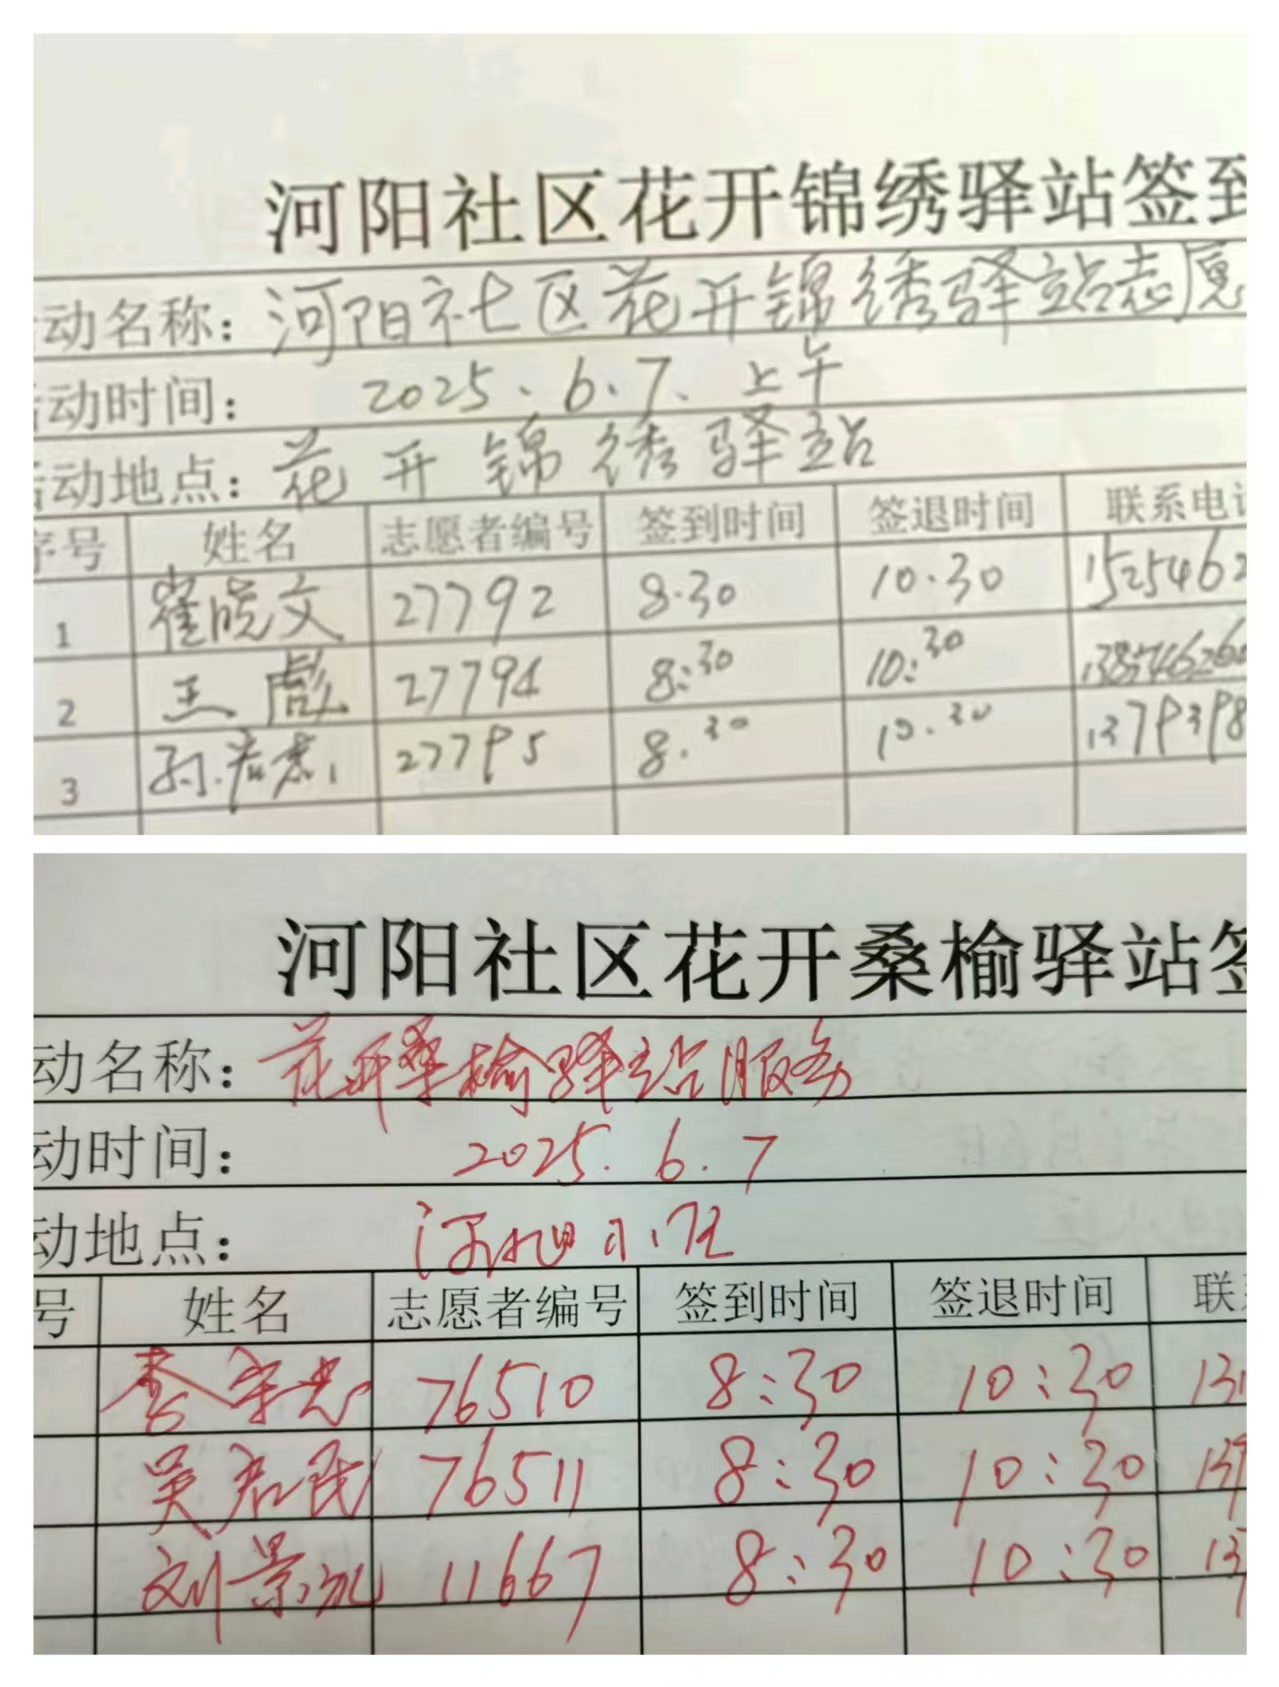 河阳社区花开锦绣驿站签到
动名称：河阳社区花开锦绣驿站志愿
活动时间： 2025.6.7.上午
活动地点：花开锦绣驿站
序号 姓名 志愿者编号 签到时间 签退时间 联系电话
1 崔晓文 27792 8.30 10.30 1525462
2 王彪 27794 8:30 10:30
3 孙 27795 8.30 10.30 1379398
河阳社区花开桑榆驿站签
动名称：花开桑榆驿站服务
动时间： 2025.6.7
动地点：
号 姓名 志愿者编号 签到时间 签退时间 联系
李守忠 76510 8:30 10:30 13
吴君民 76511 8:30 10:30 139
刘景 11667 8:30 10:30 13